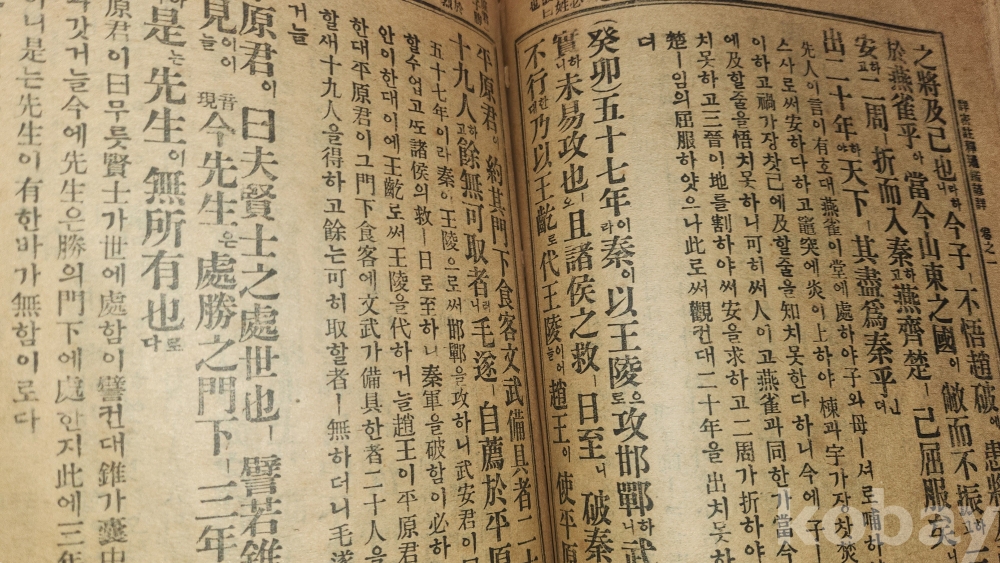 詳密註釋通鑑諺解 卷之一
之將及己也라하니今子ㅣ不悟趙破에患將
於燕雀乎아當今山東之國이敝而不振하고三
安하고二周ㅣ折而入秦하고燕齊楚ㅣ己屈服矣
出二十年하야天下ㅣ其盡爲秦乎ㄴ뎌
先人이言이有호대燕雀이堂에處하야子와母ㅣ서로哺하
스사로써安하다하고竈突에炎이上하야棟과宇가장찻焚
이하고禍가장찻己에及할줄을知치못한다하니今에子ㅣ
에及할줄을悟치못하니可히써人이고燕雀과同한가當今
치못하고三晉이地를割하야써安을求하고二周가折하야
楚ㅣ임의屈服하얏으나此로써觀컨대二十年을出치못하
뎌
(癸卯)五十七年이라秦이以王陵으로攻邯鄲하니武
實하니未易攻也오且諸侯之救ㅣ日至니破秦
不行한대乃以王齕로代王陵이어늘趙王이使平原
平原君이約其門下食客文武備具者二十
十九人하고餘無可取者러니毛遂ㅣ自薦於平原
五十七年이라秦이王陵으로써邯鄲을攻하니武安君이
할수업고또諸侯의救ㅣ日로至하니秦軍을破함이必하
안이한대이에王齕도써王陵을代하거늘趙王이平原君
한대平原君이그門下食客에文武가備具한者二十人을
할새十九人을得하고餘는可히取할者ㅣ無하더니毛遂
거늘
原君이曰夫賢士之處世也ㅣ譬若錐
見이늘音現今先生은處勝之門下ㅣ三年
是는先生이無所有也로다
原君이曰무릇賢士가世에處함이譬컨대錐가囊中
갓거늘今에先生은勝의門下에處한지此에三年
니是는先生이有한바가無함이로다
kobay